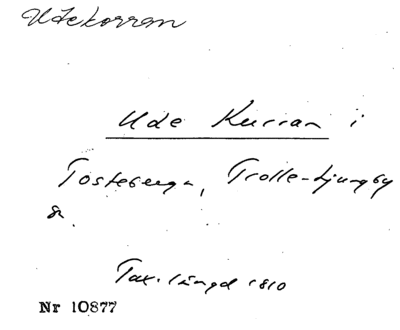 Udekorran
Ude Kurran i
Tosteberga, Trolle-Ljungby
sn.
Tax. längd 1810
Nr 10877